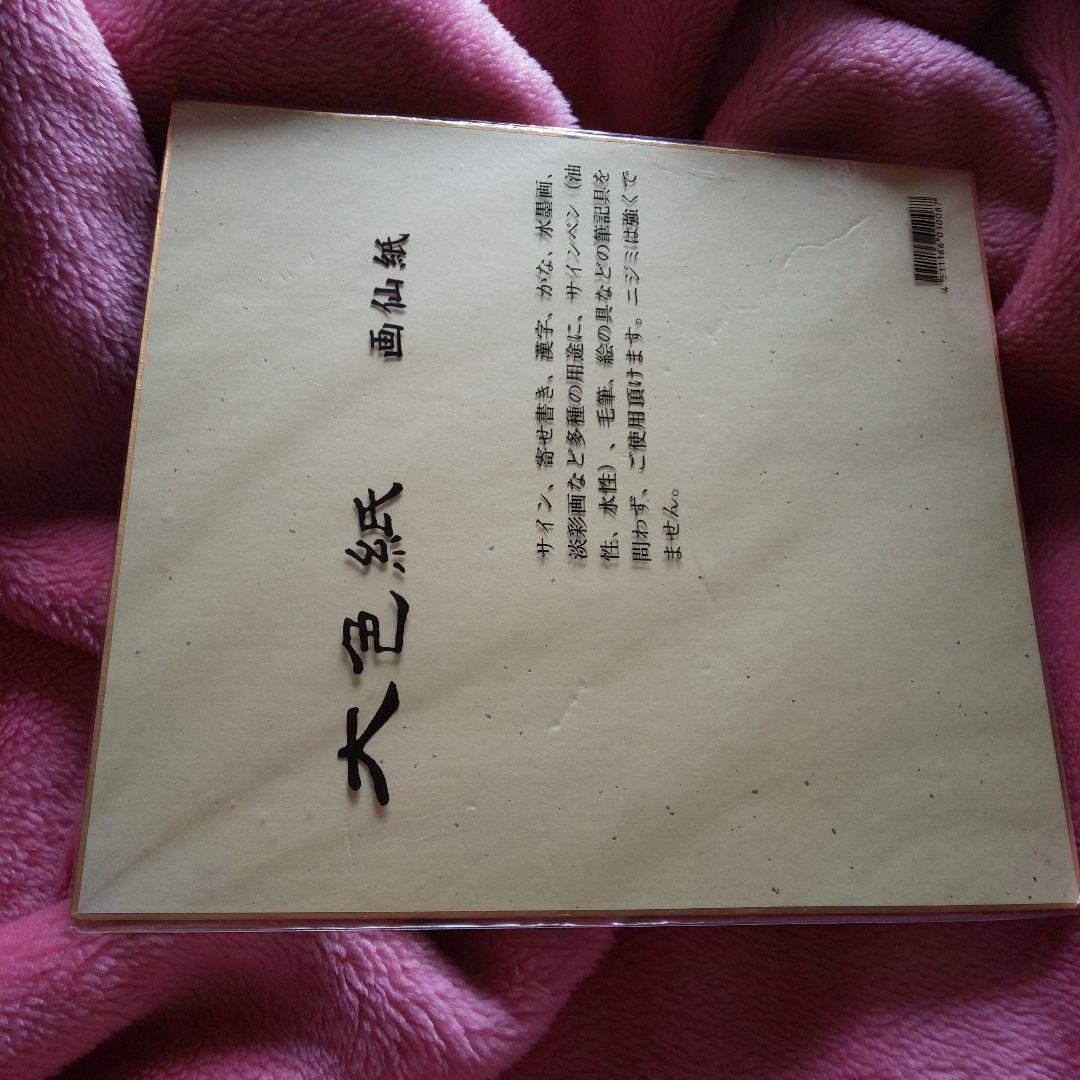 大色紙 画仙紙
サイン、寄せ書き、漢字、かな、水墨画、
淡彩画など多種の用途に、サインペン（油
性、水性）、毛筆、絵の具などの筆記具を
問わず、ご使用頂けます。ニジミは強くで
ません。
4 511166 010087